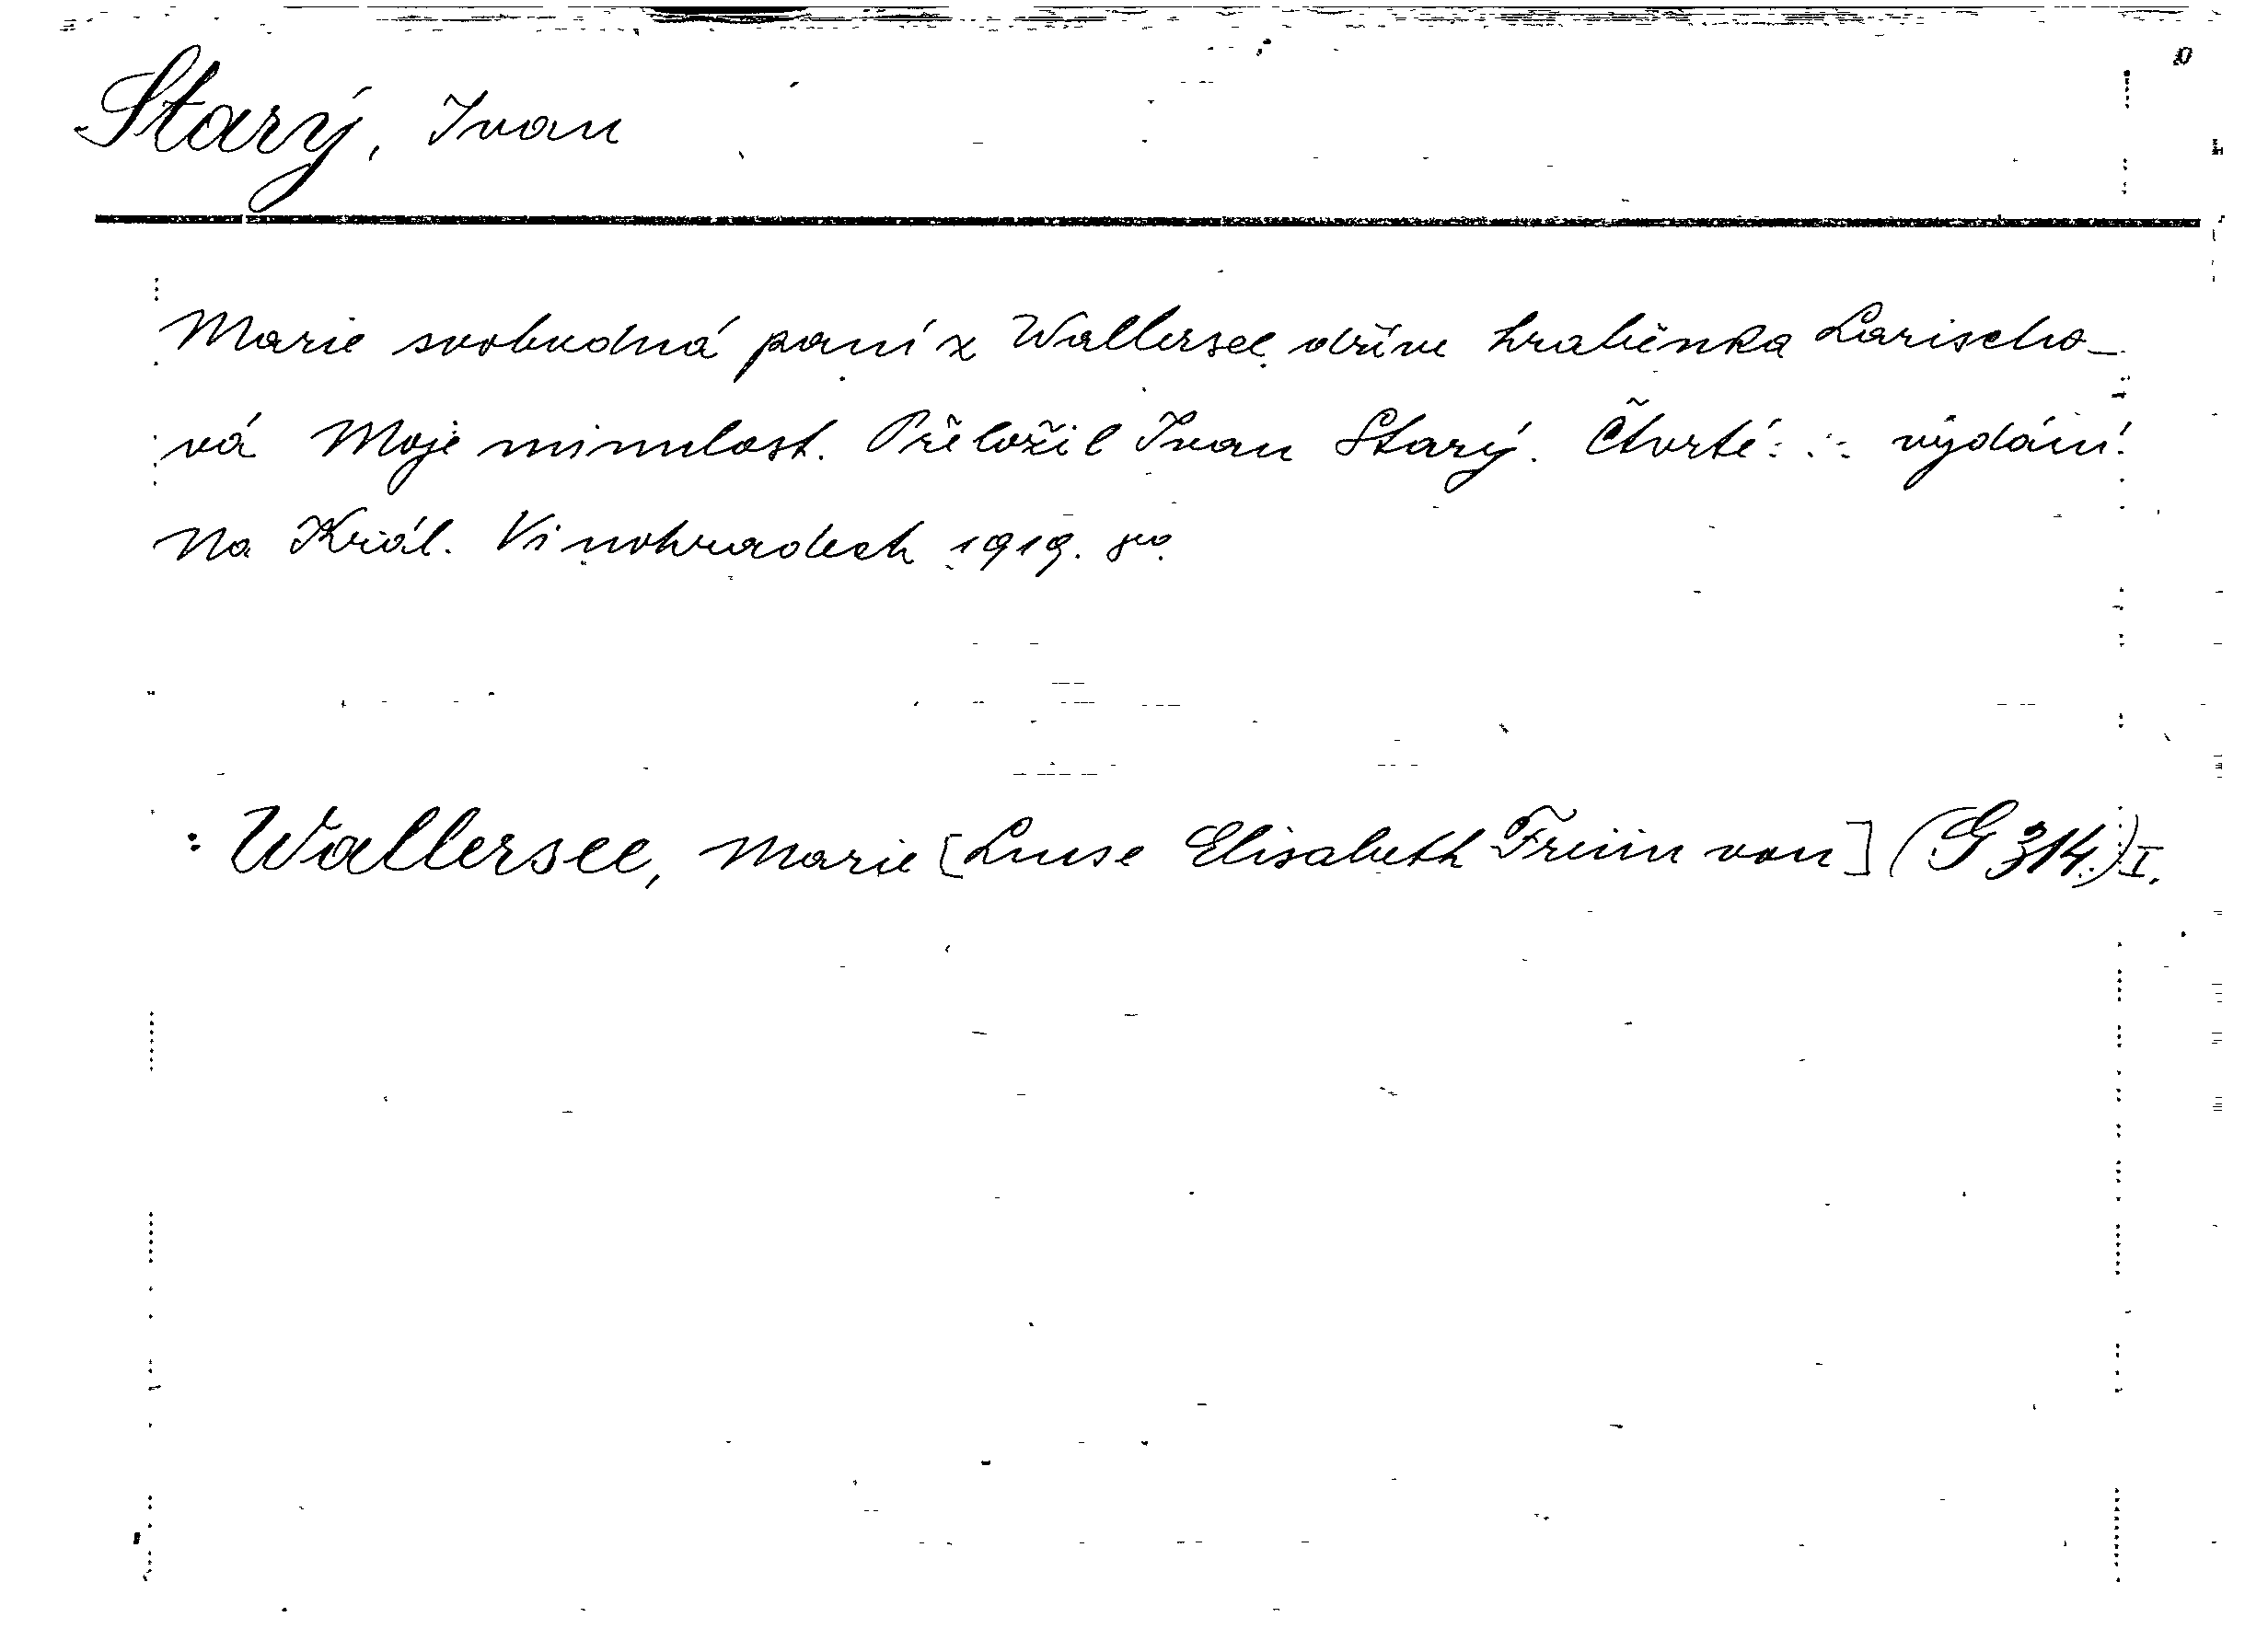 Starý, Ivan
Marie svobodná paní z Wallersee dříve hraběnka Larischo-
vá Moje minulost. Přeložil Ivan Starý. Čtvrté : : vydání.
Na Král. Vinohradech 1919. 8vo
: Wallersee, Marie [Luise Elisabeth Freiin von] (G 314.) I.